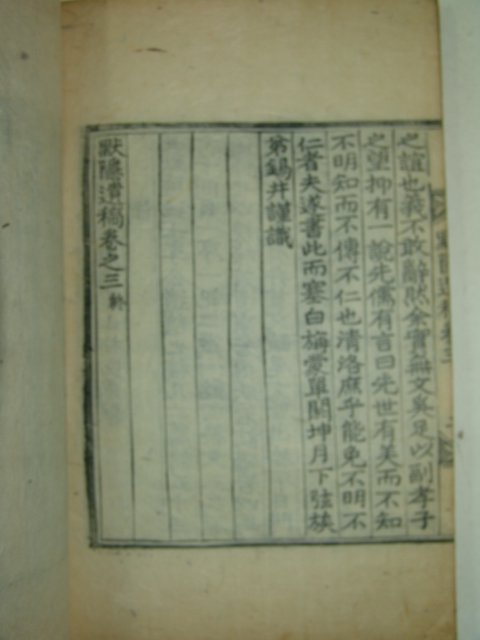 之誼也義不敢辭然余實無文奚足以副孝子
之望抑有一說先儒有言曰先世有美而不知
不明知而不傳不仁也清洛庶乎能免不明不
仁者夫遂書此而塞白 旃蒙單閼坤月下弦族
弟錫井謹識
默隱遺稿卷之三 終